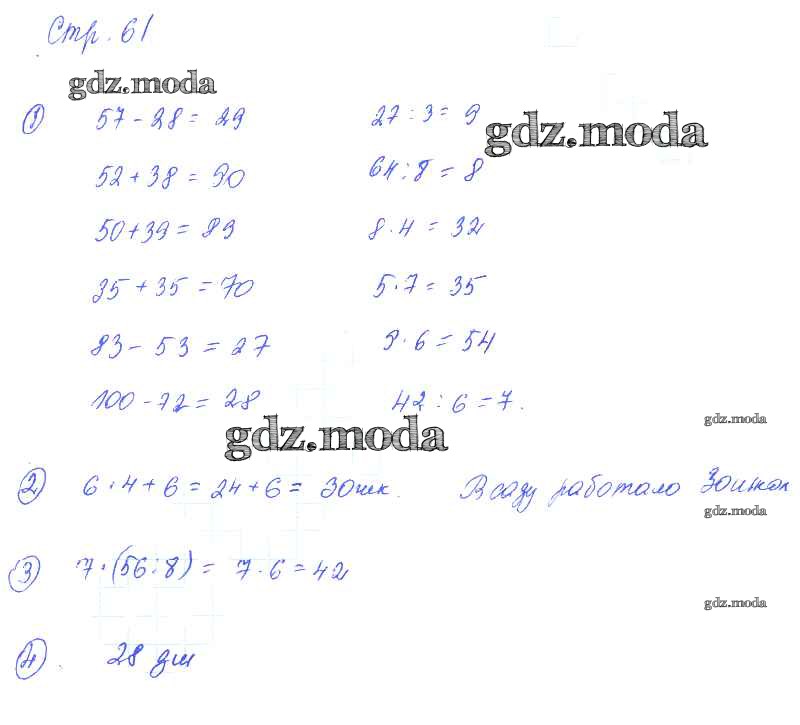 Стр. 61
gdz.moda
① 57 - 28 = 29 27 : 3 = 9
gdz.moda
52 + 38 = 90 64 : 8 = 8
50 + 39 = 89 8 · 4 = 32
35 + 35 = 70 5 · 7 = 35
83 - 53 = 27 9 · 6 = 54
100 - 72 = 28 42 : 6 = 7.
gdz.moda
gdz.moda
② 6 · 4 + 6 = 24 + 6 = 30шк. В саду работало 30шк
gdz.moda
③ 7 · (56 : 8) = 7 · 6 = 42
gdz.moda
④. 28 дм